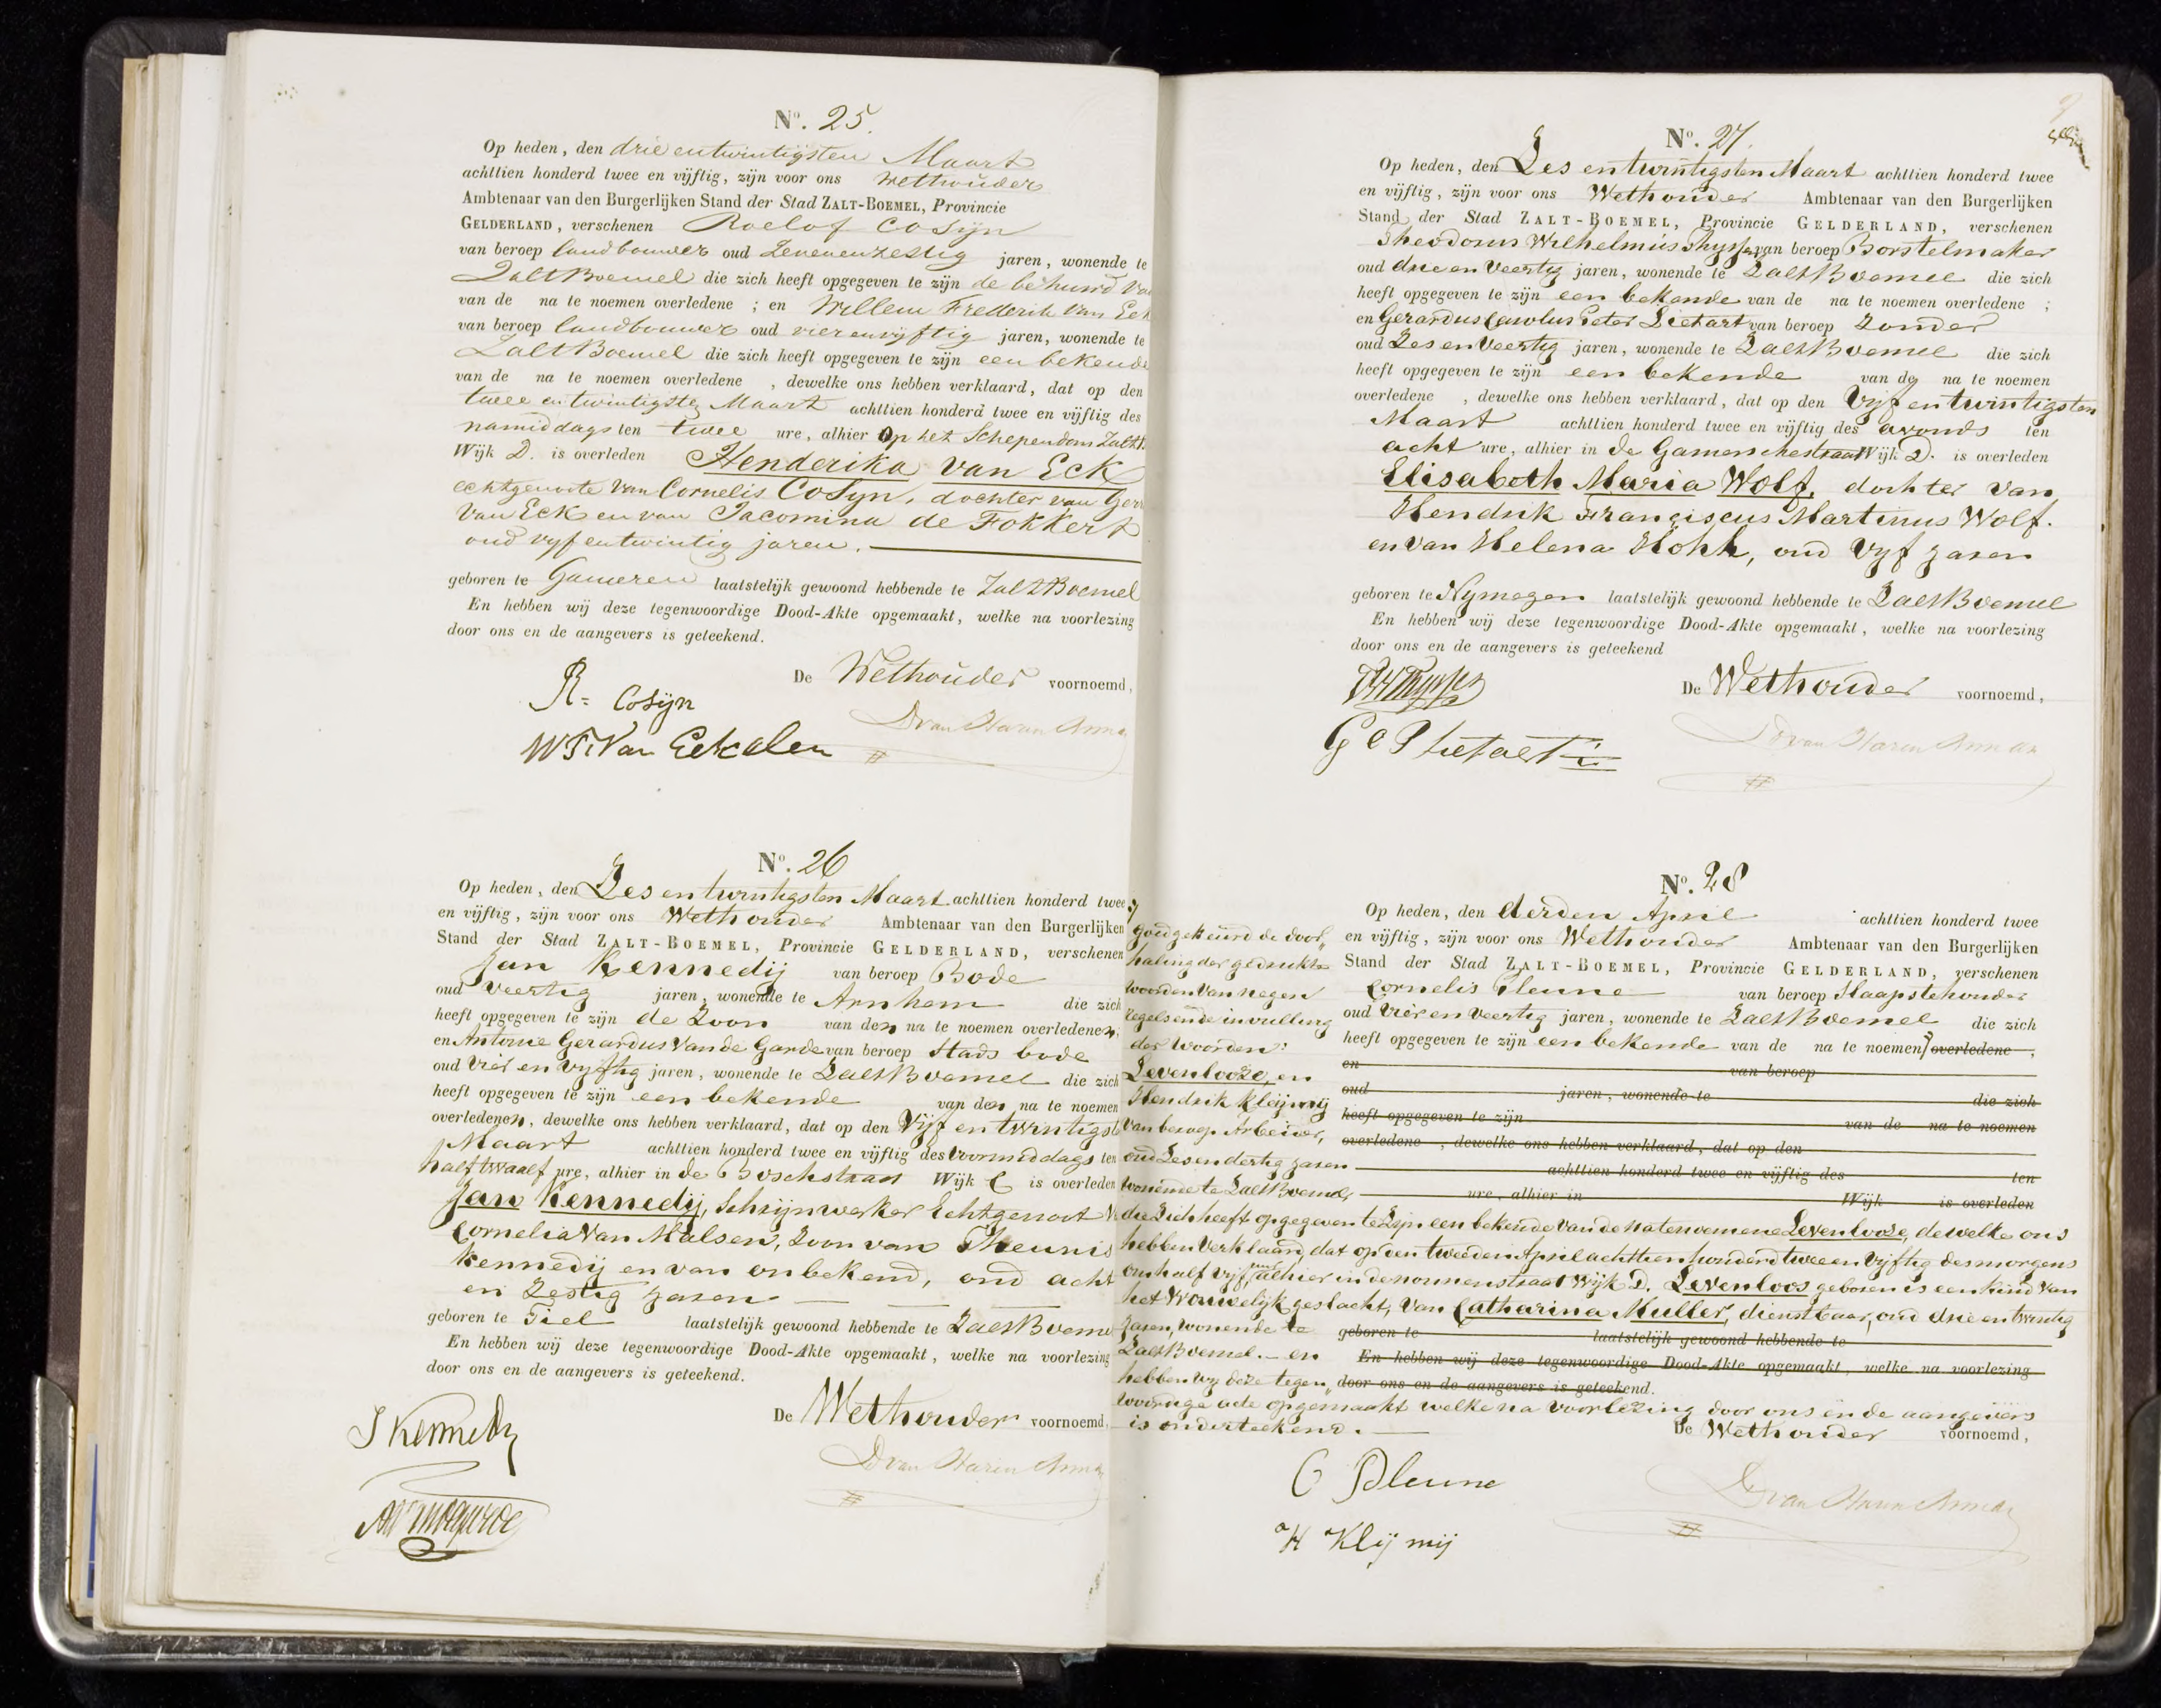 No. 25.
Op heden, den drie entwintigsten Maart
achttien honderd twee en vijftig, zijn voor ons Wethouder
Ambtenaar van den Burgerlijken Stand der Stad ZALT-BOEMEL, Provincie
GELDERLAND, verschenen Roelof Cosijn
van beroep landbouwer oud Zevenenzestig jaren, wonende te
ZaltBoemel die zich heeft opgegeven te zijn de behuwd
van de na te noemen overledene ; en Willem Frederik Van Eck
van beroep landbouwer oud vierenvijftig jaren, wonende te
ZaltBoemel die zich heeft opgegeven te zijn een bekende
van de na te noemen overledene , dewelke ons hebben verklaard, dat op den
twee en twintigsten Maart achttien honderd twee en vijftig des
namiddags ten twee ure, alhier op het Schependom
Wijk D. is overleden Henderika van Eck
echtgenoote van Cornelis Cosyn, dochter van
van Eck en van Jacomina de Fokkert
oud vyfentwintig jaren.
geboren te Gameren laatstelijk gewoond hebbende te ZaltBoemel
En hebben wij deze tegenwoordige Dood-Akte opgemaakt, welke na voorlezing
door ons en de aangevers is geteekend.
De Wethouder voornoemd,
R. Cosijn
D van Haren
W F. Van Eck
No. 26
Op heden, den Zes en twintigsten Maart achttien honderd twee
en vijftig, zijn voor ons Wethouder Ambtenaar van den Burgerlijken
Stand der Stad ZALT-BOEMEL, Provincie GELDERLAND, verschenen
Jan Kennedij van beroep Bode
oud Veertig jaren, wonende te Arnhem die zich
heeft opgegeven te zijn de Zoon van den na te noemen overledenen;
en Antonie Gerardus Van de Garde van beroep Stads bode
oud Vier en Vyftig jaren, wonende te ZaltBoemel die zich
heeft opgegeven te zijn een bekende van den na te noemen
overledenen, dewelke ons hebben verklaard, dat op den Vijf en twintigste
Maart achttien honderd twee en vijftig des Voormiddags ten
half twaalf ure, alhier in de Boschstraat Wijk C is overleden
Jan Kennedij, Schrijnwerker Echtgenoot
Cornelia Van Malsen, Zoon van Theunis
Kennedij en van onbekend, oud acht
en Zestig jaren
geboren te Tiel laatstelijk gewoond hebbende te ZaltBoeme
En hebben wij deze tegenwoordige Dood-Akte opgemaakt, welke na voorlezing
door ons en de aangevers is geteekend.
De Wethouder voornoemd,
J Kennedy
D van Haren
No. 27.
Op heden, den Zes en twintigsten Maart achttien honderd twee
en vijftig, zijn voor ons Wethouder Ambtenaar van den Burgerlijken
Stand der Stad ZALT-BOEMEL, Provincie GELDERLAND, verschenen
Theodorus Wilhelmus Thyssen van beroep Borstelmaker
oud drie en Veertig jaren, wonende te ZaltBoemel die zich
heeft opgegeven te zijn een bekende van de na te noemen overledene ;
en Gerardus Carolus Peter Lietart van beroep Zonder
oud Zes en Veertig jaren, wonende te ZaltBoemel die zich
heeft opgegeven te zijn een bekende van de na te noemen
overledene , dewelke ons hebben verklaard, dat op den Vyf en twintigsten
Maart achttien honderd twee en vijftig des avonds ten
acht ure, alhier in de Gamerschestraat Wijk D. is overleden
Elisabeth Maria Wolf, dochter van
Hendrik Franciscus Martinus Wolf.
en van Helena Hohh, oud Vyf jaren
geboren te Nymegen laatstelijk gewoond hebbende te ZaltBoemel
En hebben wij deze tegenwoordige Dood-Akte opgemaakt, welke na voorlezing
door ons en de aangevers is geteekend
De Wethouder voornoemd,
G C P Lietaert
D van Haren
No. 28
Op heden, den derden April achttien honderd twee
en vijftig, zijn voor ons Wethouder Ambtenaar van den Burgerlijken
Stand der Stad ZALT-BOEMEL, Provincie GELDERLAND, verschenen
Cornelis Pleune van beroep Slaapstehouder
oud Vier en Veertig jaren, wonende te ZaltBoemel die zich
heeft opgegeven te zijn een bekende van de na te noemen overledene ,
en van beroep
oud jaren, wonende te die zich
heeft opgegeven te zijn van de na te noemen
overledene , dewelke ons hebben verklaard, dat op den
achttien honderd twee en vijftig des ten
ure, alhier in Wijk is overleden
goedgekeurd de door„
haling der gedrukte
woorden Van negen
regels en de invulling
der Woorden:
Levenlooze, en
Hendrik Kleijmij
van beroep Arbeider,
oud Zesendertig jaren
wonende te ZaltBoemel,
die Zich heeft opgegeven te Zijn een bekende Van de na te noemene Levenlooze, dewelke ons
hebben Verklaard, dat op den tweeden April achttien honderd twee en Vijftig des morgens
om half Vijf uur alhier in de nonnenstraat Wijk D. Levenloos geboren is een kind van
het Vrouwelijk geslacht, Van Catharina Muller, dienstbaar, oud drie en twintig
jaren, wonende te
ZaltBoemel. en
hebben wy deze tegen„
geboren te laatstelijk gewoond hebbende te
En hebben wij deze tegenwoordige Dood-Akte opgemaakt, welke na voorlezing
door ons en de aangevers is geteekend.
woordige acte opgemaakt welke na Voorlezing door ons en de aangevers
is onderteekend.
De Wethouder voornoemd,
C Pleune
D van Haren
H Klijmij